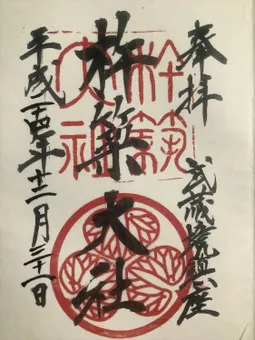 奉拝
武蔵境鎮座
杵築大社
杵築大社
平成二十四年十二月三十一日